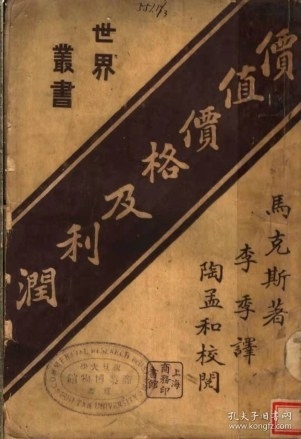 世界
叢書
價值價格及利潤
馬克斯著
李季譯
陶孟和校閱
上海
商務印
書館
孔夫子旧书网